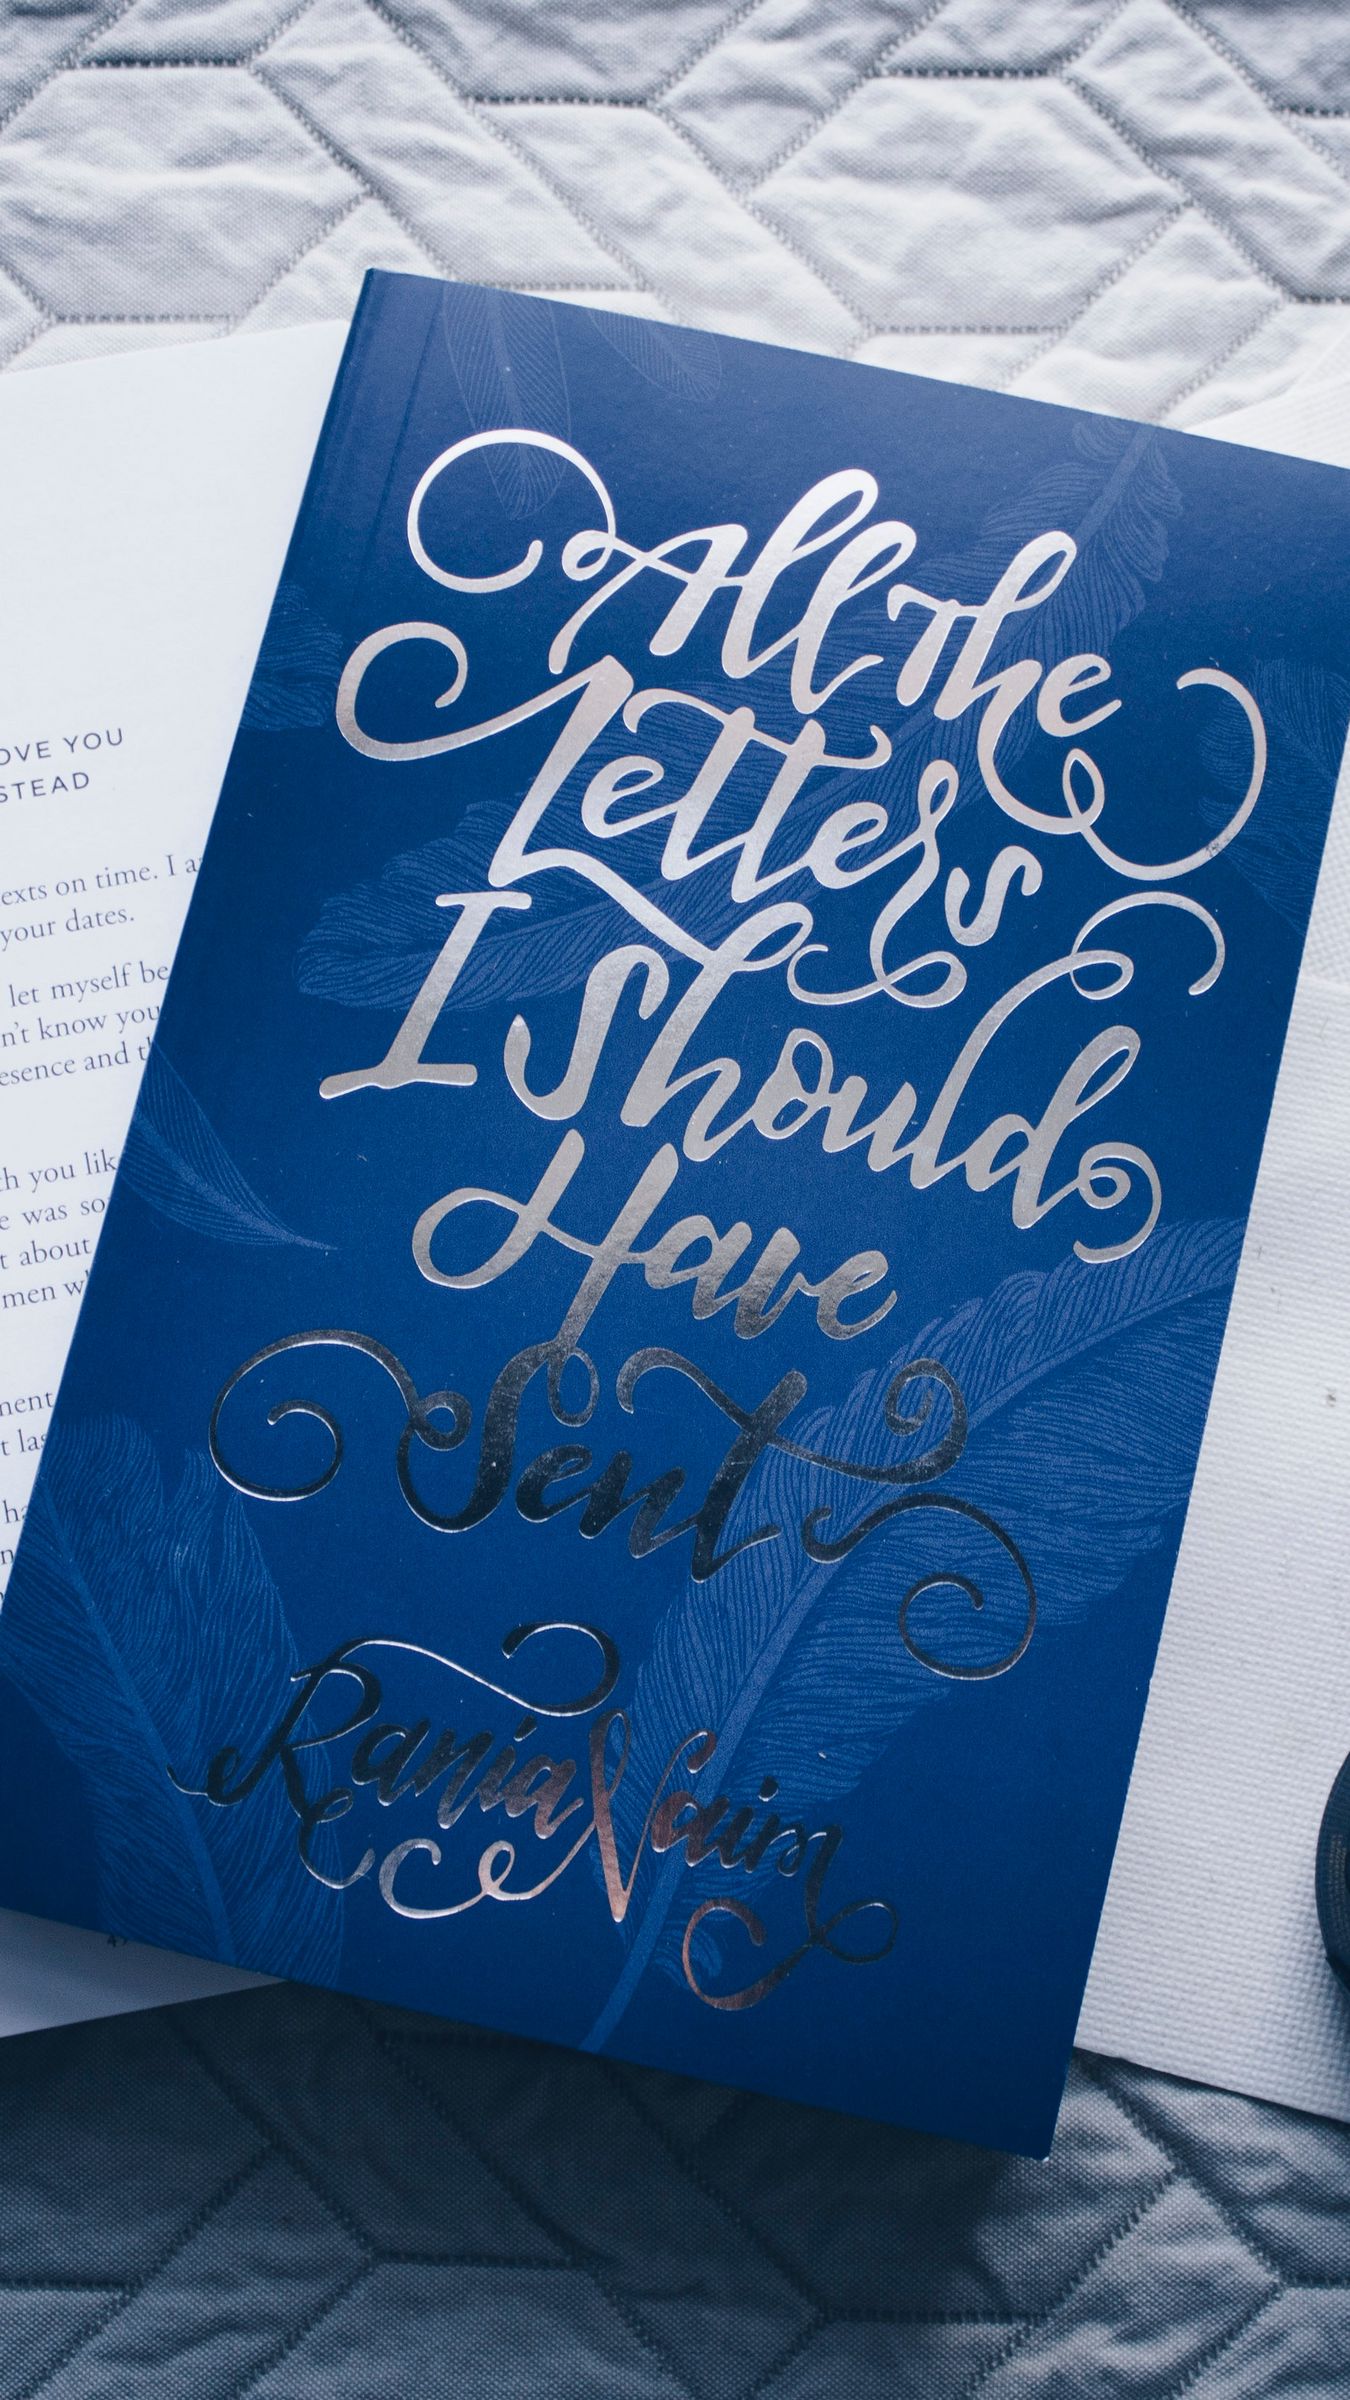 All The
Letters
I Should
Have
Sent
Rania Naim
OVE YOU
STEAD
exts on time. I a
your dates.
let myself be
n't know you
esence and th
th you lik
e was so
t about
men w
ment
t las
ha
n